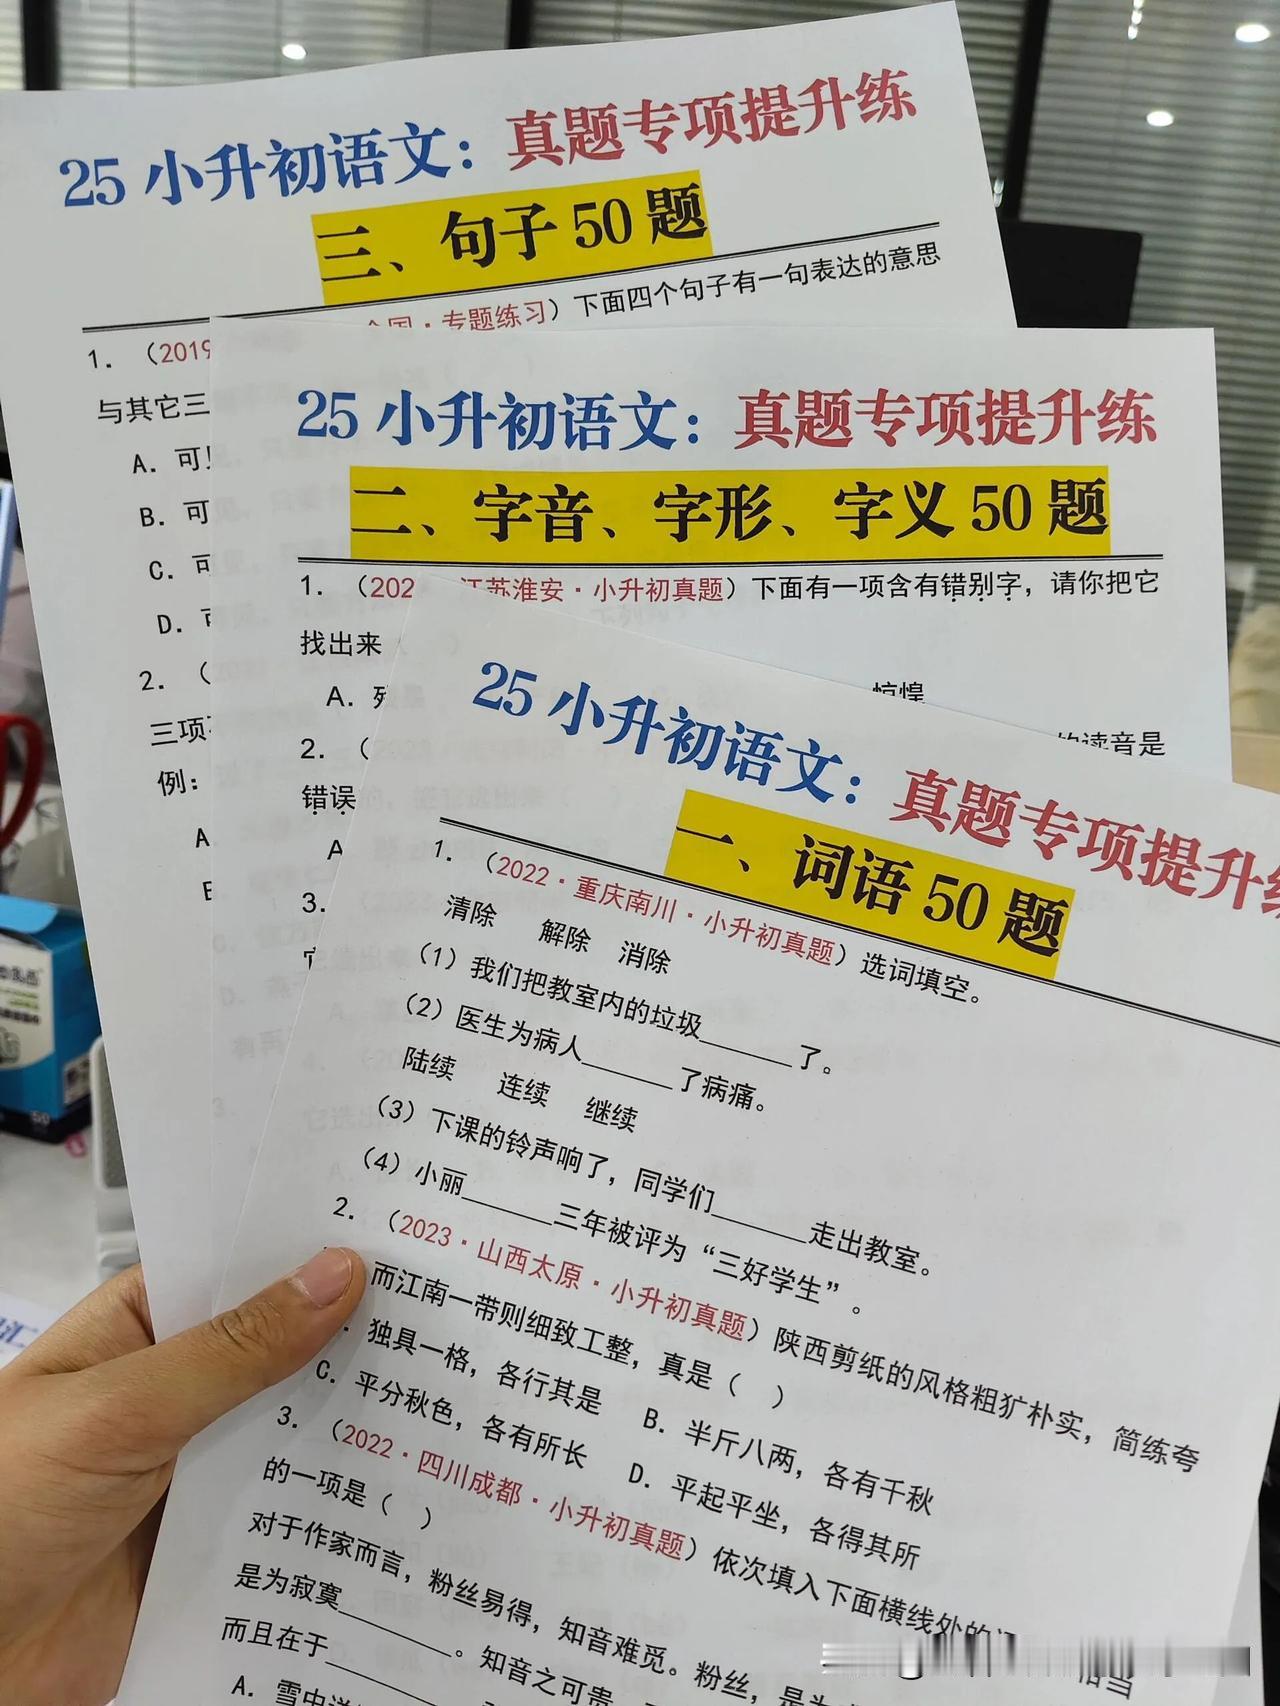 25 小升初语文：真题专项提升练
三、句子 50 题
1. （2019 全国·专题练习）下面四个句子有一句表达的意思
与其它三
A. 可
B. 可
C. 可
D.
2. （
三项
例：
A
B
25 小升初语文：真题专项提升练
二、字音、字形、字义 50 题
1. （202 江苏淮安·小升初真题）下面有一项含有错别字，请你把它
找出来
A. 惊惶
2. （ 的读音是
错误
A
3.
25 小升初语文：真题专项提升练
一、词语 50 题
1. （2022·重庆南川·小升初真题）选词填空。
清除 解除 消除
（1）我们把教室内的垃圾______了。
（2）医生为病人______了病痛。
陆续 连续 继续
（3）下课的铃声响了，同学们______走出教室。
（4）小丽______三年被评为“三好学生”。
2. （2023·山西太原·小升初真题）陕西剪纸的风格粗犷朴实，简练夸
而江南一带则细致工整，真是（ ）
独具一格，各行其是 B. 半斤八两，各有千秋
C. 平分秋色，各有所长 D. 平起平坐，各得其所
3. （2022·四川成都·小升初真题）依次填入下面横线处的
的一项是（ ）
对于作家而言，粉丝易得，知音难觅。粉丝，是为
是为寂寞______。知音之可贵，
而且在于______
A. 雪中送